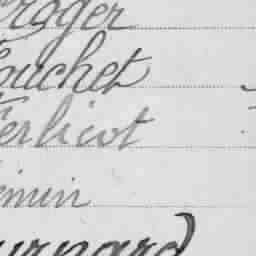 roger
ouchet
erlicot
emin
urnard